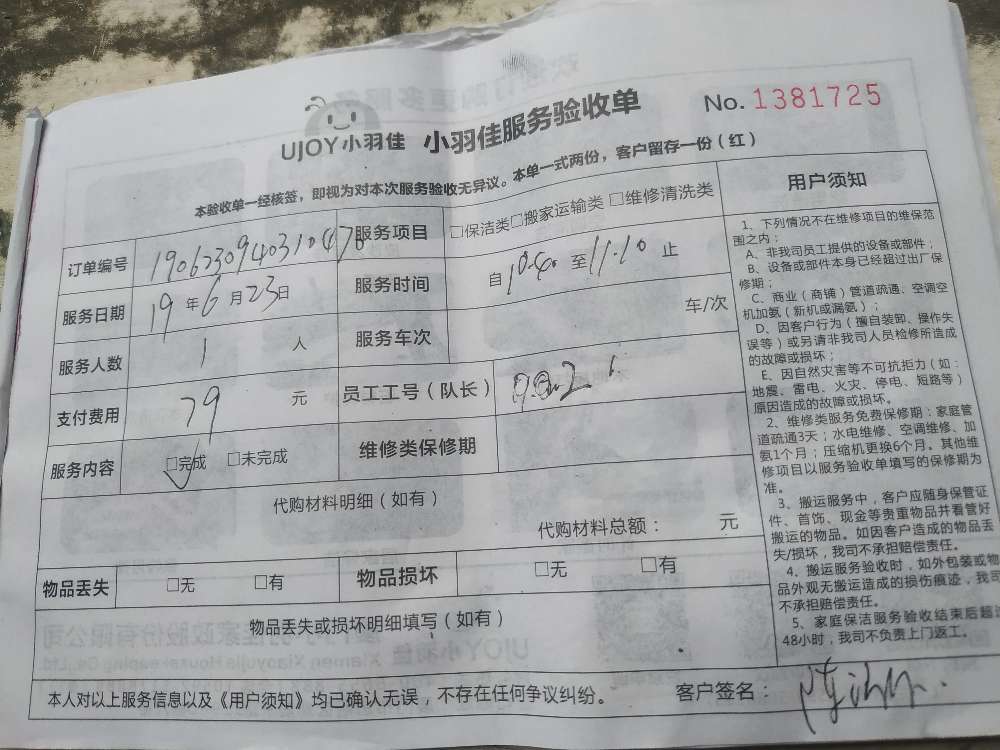 UJOY小羽佳 小羽佳服务验收单 No. 1381725
本验收单一经核签，即视为对本次服务验收无异议。本单一式两份，客户留存一份（红）
订单编号 1906230940310476 服务项目 □保洁类□搬家运输类 □维修清洗类
服务日期 19 年 6 月 23 日 服务时间 自 10:40 至 11.10 止
服务人数 1 人 服务车次 车/次
支付费用 79 元 员工工号（队长）
服务内容 □完成 □未完成 维修类保修期
代购材料明细（如有）
代购材料总额： 元
物品丢失 □无 □有 物品损坏 □无 □有
物品丢失或损坏明细填写（如有）
本人对以上服务信息以及《用户须知》均已确认无误，不存在任何争议纠纷。 客户签名：
用户须知
1、下列情况不在维修项目的维保范
围之内：
A、非我司员工提供的设备或部件；
B、设备或部件本身已经超过出厂保
修期；
C、商业（商铺）管道疏通、空调空
机加氨（新机或漏氨）；
D、因客户行为（擅自装卸、操作失
误等）或另请非我司人员检修所造成
的故障或损坏；
E、因自然灾害等不可抗拒力（如：
地震、雷电、火灾、停电、短路等）
原因造成的故障或损坏。
2、维修类服务免费保修期：家庭管
道疏通3天；水电维修、空调维修、加
氨1个月；压缩机更换6个月。其他维
修项目以服务验收单填写的保修期为
准。
3、搬运服务中，客户应随身保管证
件、首饰、现金等贵重物品并看管好
搬运的物品。如因客户造成的物品丢
失/损坏，我司不承担赔偿责任。
4、搬运服务验收时，如外包装或物
品外观无搬运造成的损伤痕迹，我司
不承担赔偿责任。
5、家庭保洁服务验收结束后超过
48小时，我司不负责上门返工。